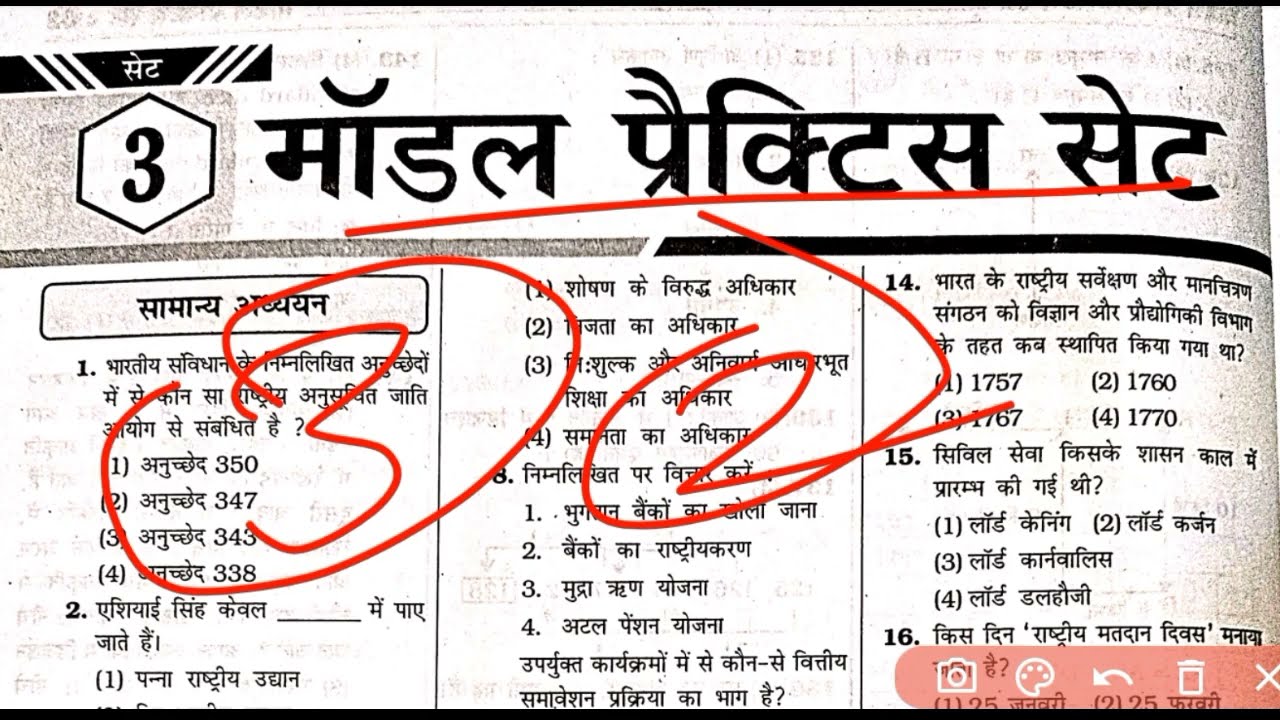 सेट
3
मॉडल प्रैक्टिस सेट
सामान्य अध्ययन
1. भारतीय संविधान के निम्नलिखित अनुच्छेदों
में से कौन सा राष्ट्रीय अनुसूचित जाति
आयोग से संबंधित है ?
(1) अनुच्छेद 350
(2) अनुच्छेद 347
(3) अनुच्छेद 343
(4) अनुच्छेद 338
2. एशियाई सिंह केवल ______ में पाए
जाते हैं।
(1) पन्ना राष्ट्रीय उद्यान
(1) शोषण के विरुद्ध अधिकार
(2) निजता का अधिकार
(3) नि:शुल्क और अनिवार्य आधारभूत
शिक्षा का अधिकार
(4) समानता का अधिकार
8. निम्नलिखित पर विचार करें :
1. भुगतान बैंकों का खोला जाना
2. बैंकों का राष्ट्रीयकरण
3. मुद्रा ऋण योजना
4. अटल पेंशन योजना
उपर्युक्त कार्यक्रमों में से कौन-से वित्तीय
समावेशन प्रक्रिया का भाग है?
14. भारत के राष्ट्रीय सर्वेक्षण और मानचित्रण
संगठन को विज्ञान और प्रौद्योगिकी विभाग
के तहत कब स्थापित किया गया था?
(1) 1757 (2) 1760
(3) 1767 (4) 1770
15. सिविल सेवा किसके शासन काल में
प्रारम्भ की गई थी?
(1) लॉर्ड केनिंग (2) लॉर्ड कर्जन
(3) लॉर्ड कार्नवालिस
(4) लॉर्ड डलहौजी
16. किस दिन 'राष्ट्रीय मतदान दिवस' मनाया
जाता है?
(1) 25 जनवरी (2) 25 फरवरी
3
2